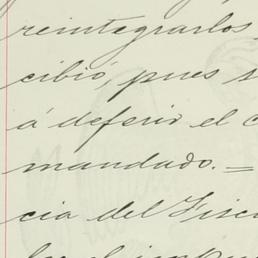 reintegrarlos,
cibió, pues s
á deferir el c
mandado. =
cia del Fisc